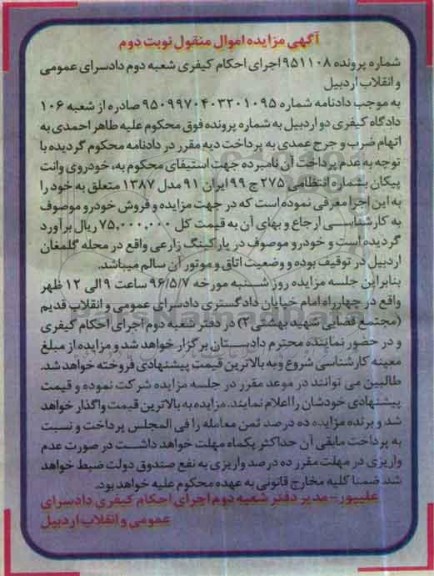 آگهی مزایده اموال منقول نوبت دوم
شماره پرونده ۹۵۱۱۰۸ اجرای احکام کیفری شعبه دوم دادسرای عمومی
و انقلاب اردبیل
به موجب دادنامه شماره ۹۵۰۹۹۷۰۴۰۳۲۰۱۰۹۵ صادره از شعبه ۱۰۶
دادگاه کیفری دو اردبیل به شماره پرونده فوق محکوم علیه طاهر احمدی به
اتهام ضرب و جرح عمدی به پرداخت دیه مقرر در دادنامه محکوم گردیده با
توجه به عدم پرداخت آن نامبرده جهت استیفای محکوم به، خودروی وانت
پیکان بشماره انتظامی ۲۷۵ ج ۹۹ ایران ۹۱ مدل ۱۳۸۷ متعلق به خود را
به این اجرا معرفی نموده است که در جهت مزایده و فروش خودرو موصوف
به کارشناسی ارجاع و بهای آن به قیمت کل ۷۵,۰۰۰,۰۰۰ ریال برآورد
گردیده است و خودرو موصوف در پارکینگ زارعی واقع در محله گلمغان
اردبیل در توقیف بوده و وضعیت اتاق و موتور آن سالم میباشد.
بنابراین جلسه مزایده روز شنبه مورخه ۹۶/۵/۷ ساعت ۹ الی ۱۲ ظهر
واقع در چهارراه امام خیابان دادگستری دادسرای عمومی و انقلاب قدیم
(مجتمع قضایی شهید بهشتی ۲) در دفتر شعبه دوم اجرای احکام کیفری
و در حضور نماینده محترم دادستان برگزار خواهد شد و مزایده از مبلغ
معینه کارشناسی شروع و به بالاترین قیمت پیشنهادی فروخته خواهد شد.
طالبین می توانند در موعد مقرر در جلسه مزایده شرکت نموده و قیمت
پیشنهادی خودشان را اعلام نمایند. مزایده به بالاترین قیمت واگذار خواهد
شد و برنده مزایده ده درصد ثمن معامله را فی المجلس پرداخت و نسبت
به پرداخت مابقی آن حداکثر یکماه مهلت خواهد داشت در صورت عدم
واریزی در مهلت مقرر ده درصد واریزی به نفع صندوق دولت ضبط خواهد
شد. ضمنا کلیه مخارج قانونی به عهده محکوم علیه خواهد بود.
علیپور - مدیر دفتر شعبه دوم اجرای احکام کیفری دادسرای
عمومی و انقلاب اردبیل